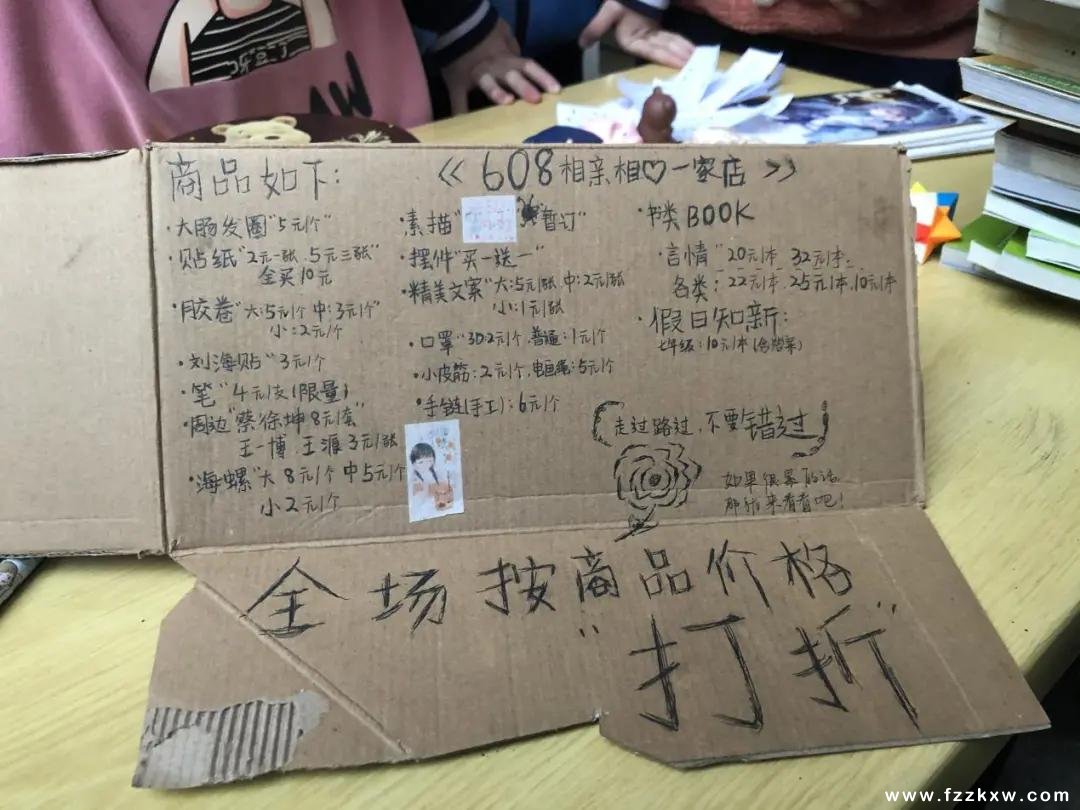 商品如下:
《608相亲相♡一家店》
·大肠发圈"5元1个"
·贴纸"2元一张.5元三张"
全买10元
·胶卷"大:5元1个 中:3元1个"
小:2元1个
·刘海贴"3元1个
·笔"4元1支(限量)
·周边"蔡徐坤8元1套"
王一博.王源3元1张
·海螺"大8元1个 中5元1个
小2元1个
·素描"暂订"
·摆件"买一送一"
·精美文案"大:5元1张.中:2元1张
小:1元1张
·口罩"3D:2元1个,普通:1元1个
·小皮筋:2元1个,电话绳:5元1个
·手链(手工):6元1个
·书类BOOK
·言情"20元1本 32元1本
各类:22元1本.25元1本.10元1本
·假日知新:
七年级:10元1本(含答案)
走过路过,不要错过
如果很累的话
那就来看看吧!
全场按商品价格
"打折"
www.fzzkxw.com